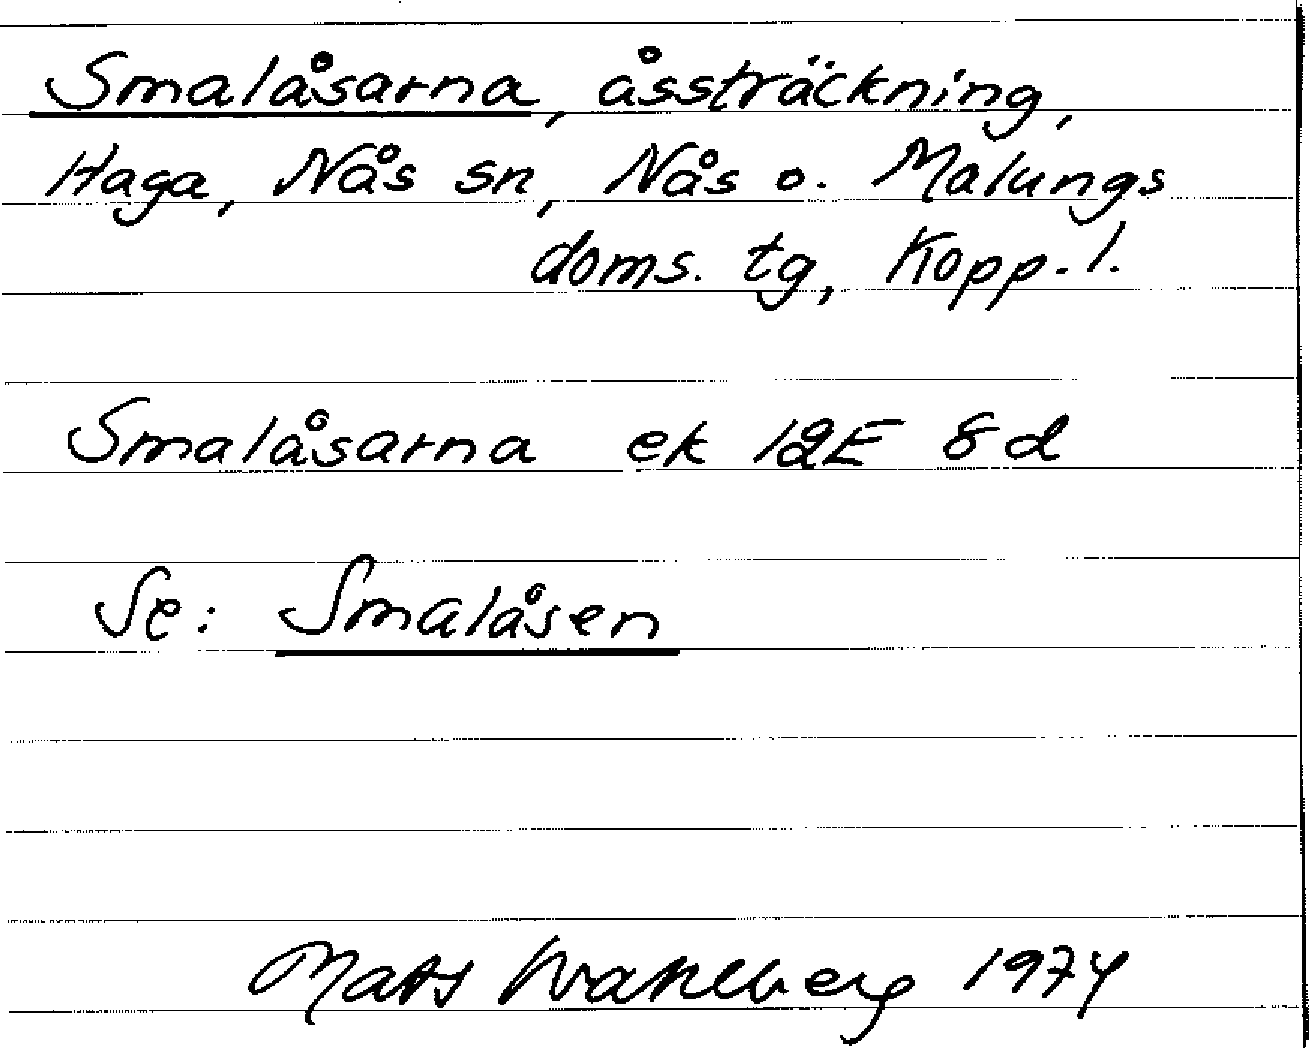 Smalåsarna, åssträckning,
Haga, Nås sn, Nås o. Malungs
doms. tg, Kopp. l.
Smalåsarna ek 12E 8d
Se: Smalåsen
Mats Wahlberg 1974